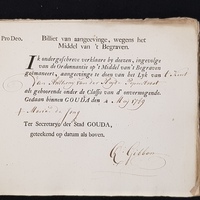 Pro Deo.
Billiet van aangeevinge, wegens het
Middel van 't Begraven.
Ik ondergeschreve verklaare by deezen, ingevolge
van de Ordonnantie op 't Middel van 't Begraven
geëmaneert, aangevinge te dien van het Lyk van 't kind
van Anthony van der
als gehoorende onder de Classis van d' onvermogende.
Gedaan binnen GOUDA den 4 May 1769
de Jong
Ter Secretarye der Stad GOUDA,
geteekend op datum als boven.